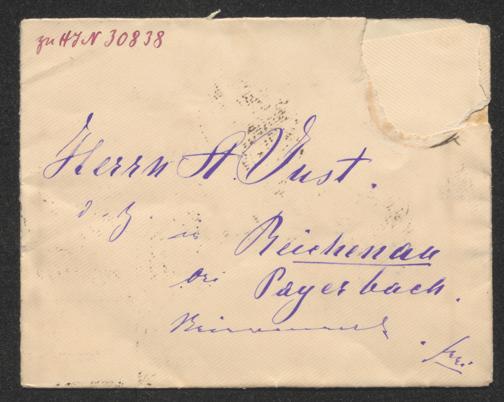 zu HIN 30838
Herrn A. Just.
d. Z. in
Reichenau
bei Payerbach.